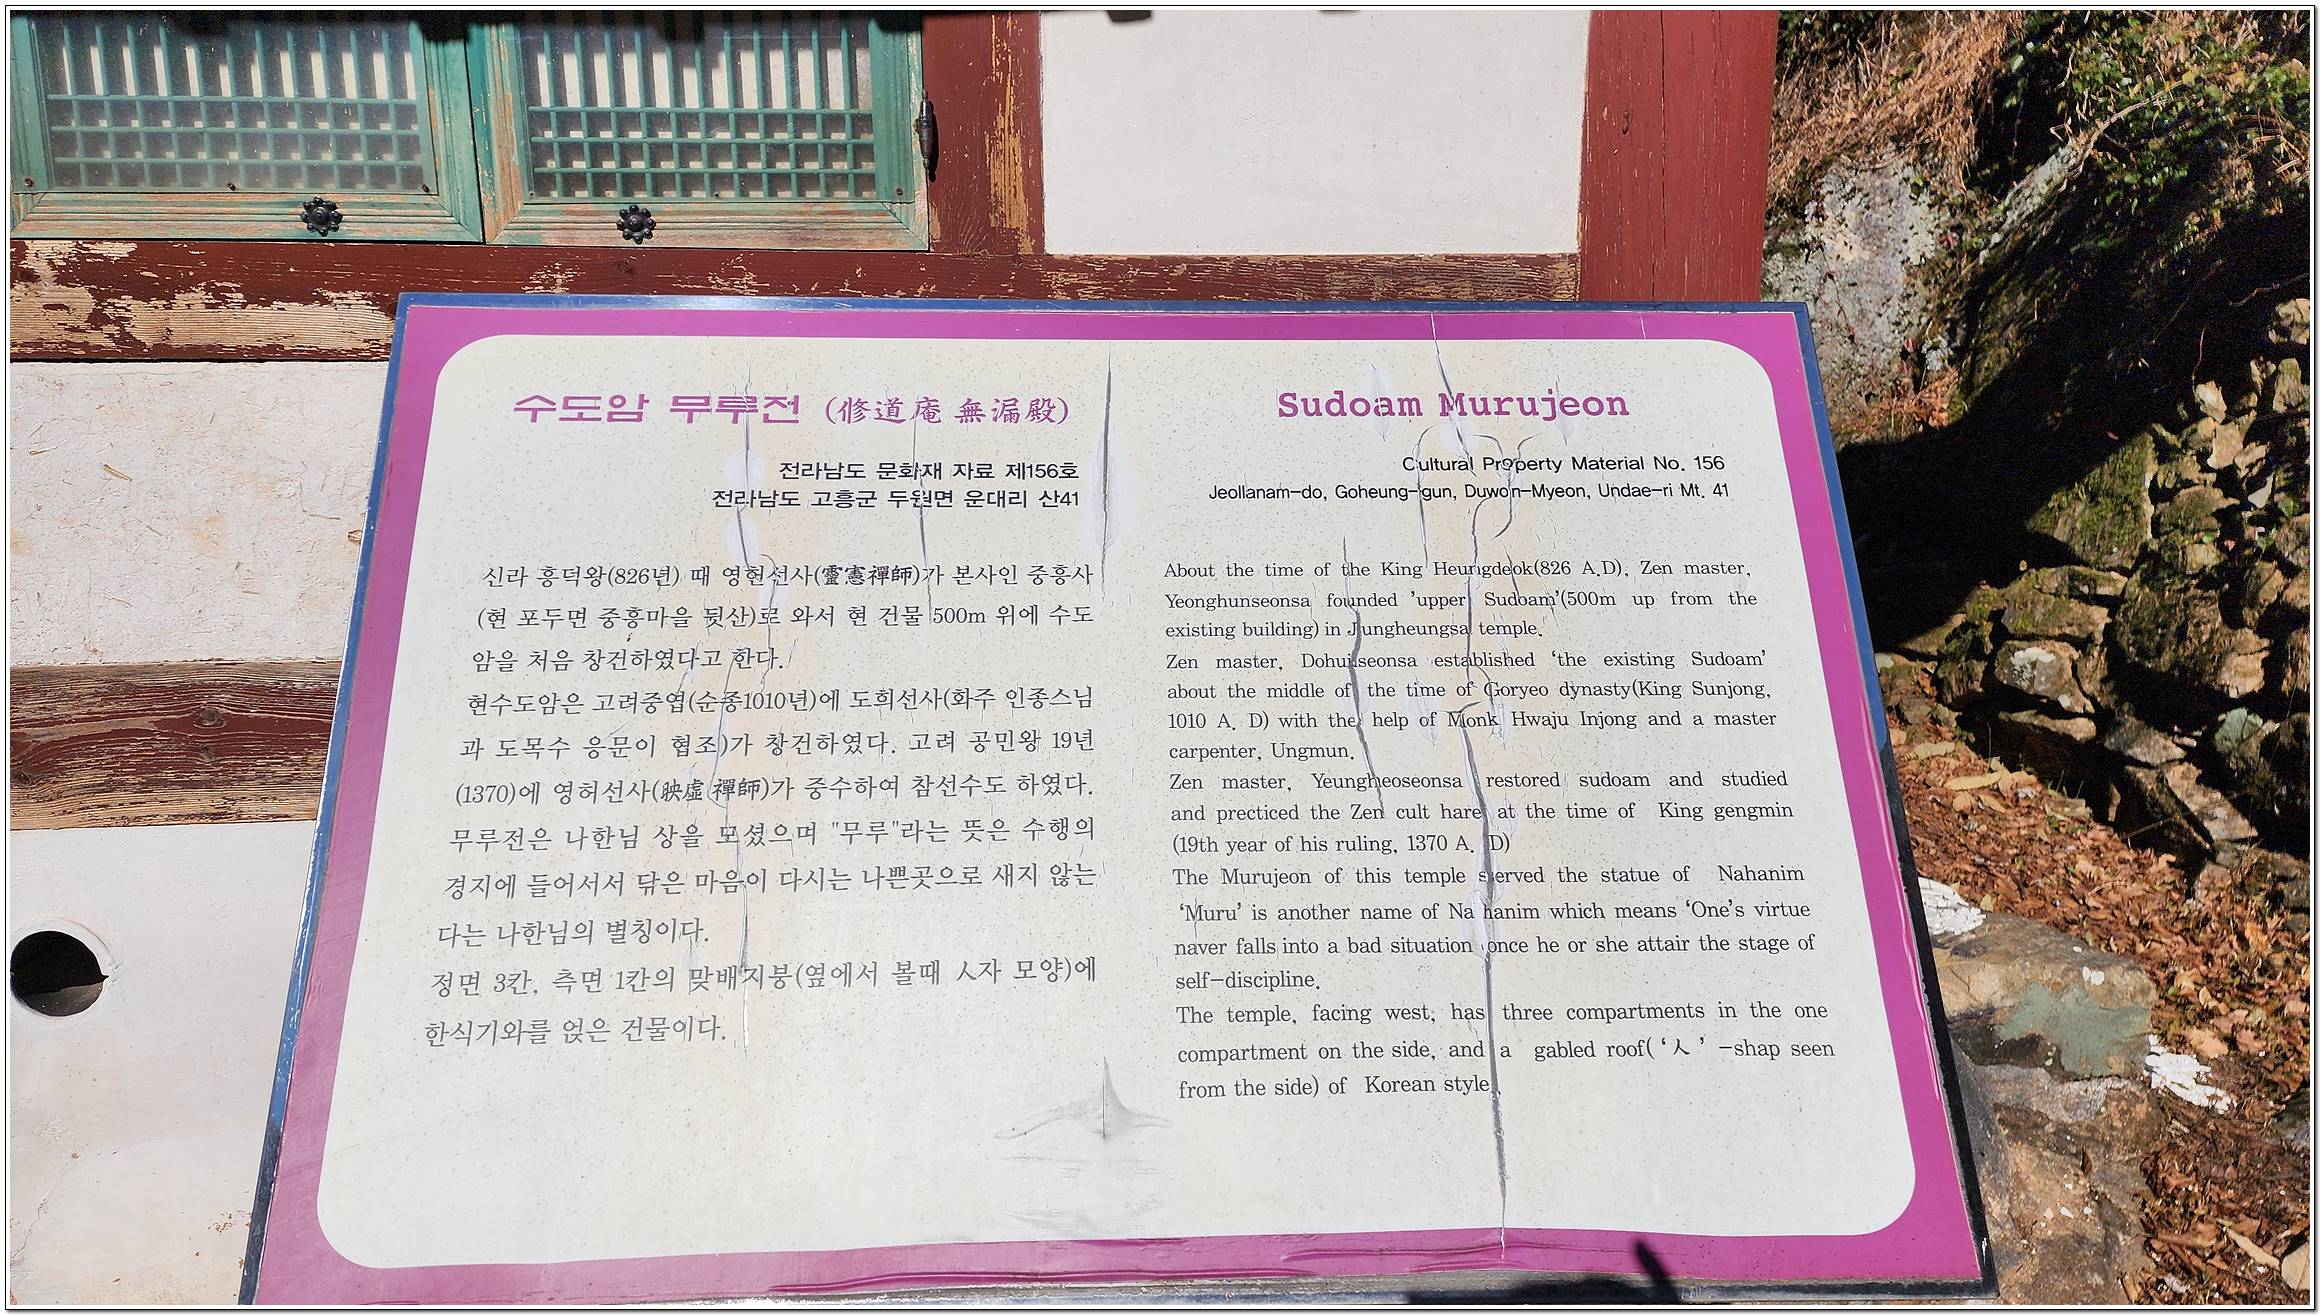 수도암 무루전 (修道庵 無漏殿)
전라남도 문화재 자료 제156호
전라남도 고흥군 두원면 운대리 산41
신라 흥덕왕(826년) 때 영헌선사(靈憲禪師)가 본사인 중흥사
(현 포두면 중흥마을 뒷산)로 와서 현 건물 500m 위에 수도
암을 처음 창건하였다고 한다.
현수도암은 고려중엽(순종1010년)에 도희선사(화주 인종스님
과 도목수 응문이 협조)가 창건하였다. 고려 공민왕 19년
(1370)에 영허선사(映虛禪師)가 중수하여 참선수도 하였다.
무루전은 나한님 상을 모셨으며 "무루"라는 뜻은 수행의
경지에 들어서서 닦은 마음이 다시는 나쁜곳으로 새지 않는
다는 나한님의 별칭이다.
정면 3칸, 측면 1칸의 맞배지붕(옆에서 볼때 人자 모양)에
한식기와를 얹은 건물이다.
Sudoam Murujeon
Cultural Property Material No. 156
Jeollanam-do, Goheung-gun, Duwon-Myeon, Undae-ri Mt. 41
About the time of the King Heungdeok(826 A.D), Zen master,
Yeonghunseonsa founded 'upper Sudoam'(500m up from the
existing building) in Jungheungsa temple.
Zen master, Dohuiseonsa established 'the existing Sudoam'
about the middle of the time of Goryeo dynasty(King Sunjong,
1010 A. D) with the help of Monk Hwaju Injong and a master
carpenter, Ungmun.
Zen master, Yeungheoseonsa restored sudoam and studied
and precticed the Zen cult hare at the time of King gengmin
(19th year of his ruling, 1370 A. D)
The Murujeon of this temple served the statue of Nahanim
'Muru' is another name of Nahanim which means 'One's virtue
naver falls into a bad situation once he or she attair the stage of
self-discipline.
The temple, facing west, has three compartments in the one
compartment on the side, and a gabled roof( '人' -shap seen
from the side) of Korean style.